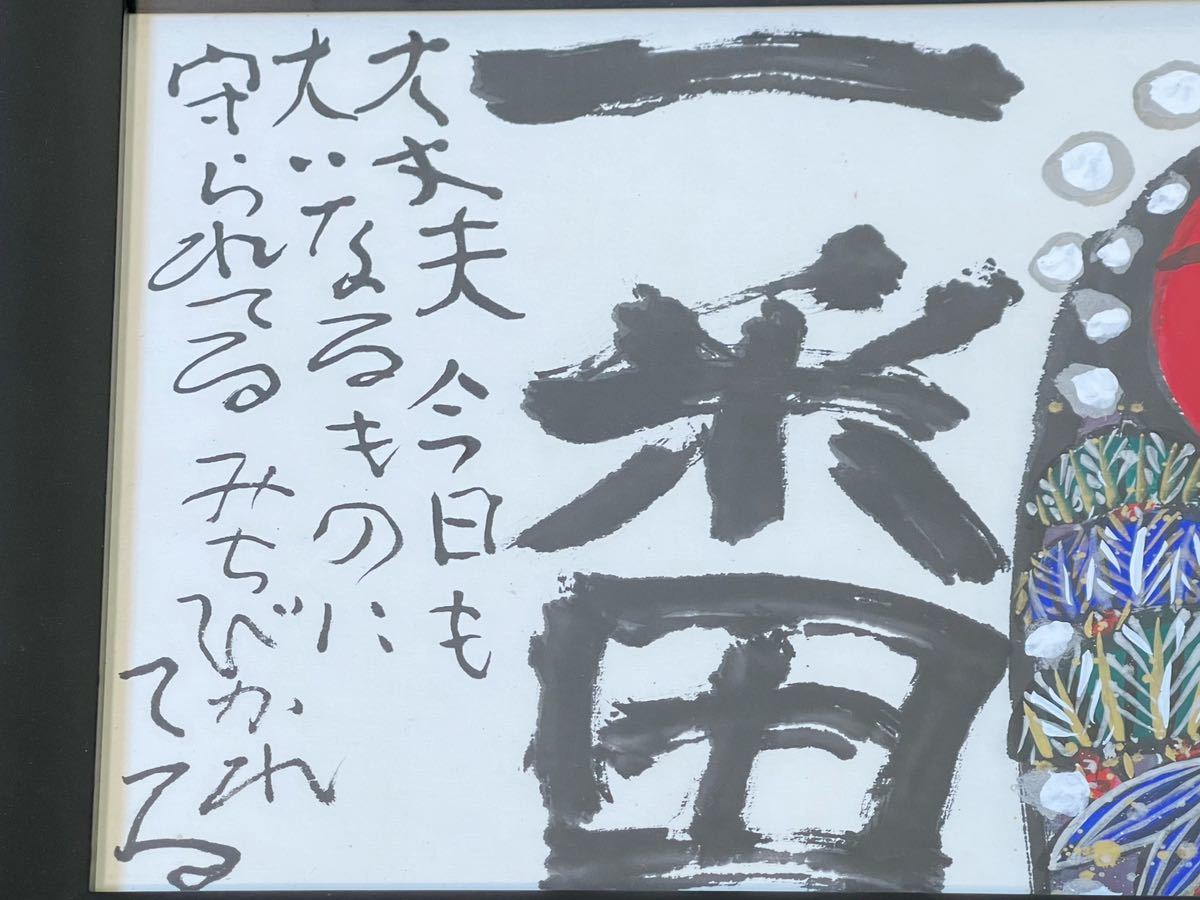 一番
大丈夫 今日も
大いなるものに
守られてる みちびかれ
てる